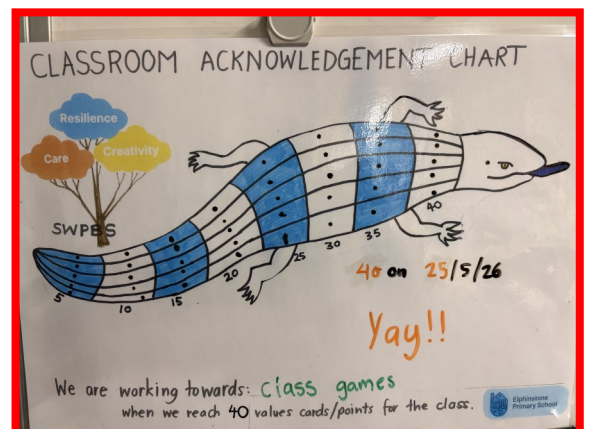 CLASSROOM ACKNOWLEDGEMENT CHART
Resilience
Care
Creativity
SWPBS
5
10
15
20
25
30
35
40
40 on 25/5/26
Yay!!
We are working towards: class games
when we reach 40 values cards/points for the class.
Elphinstone
Primary School